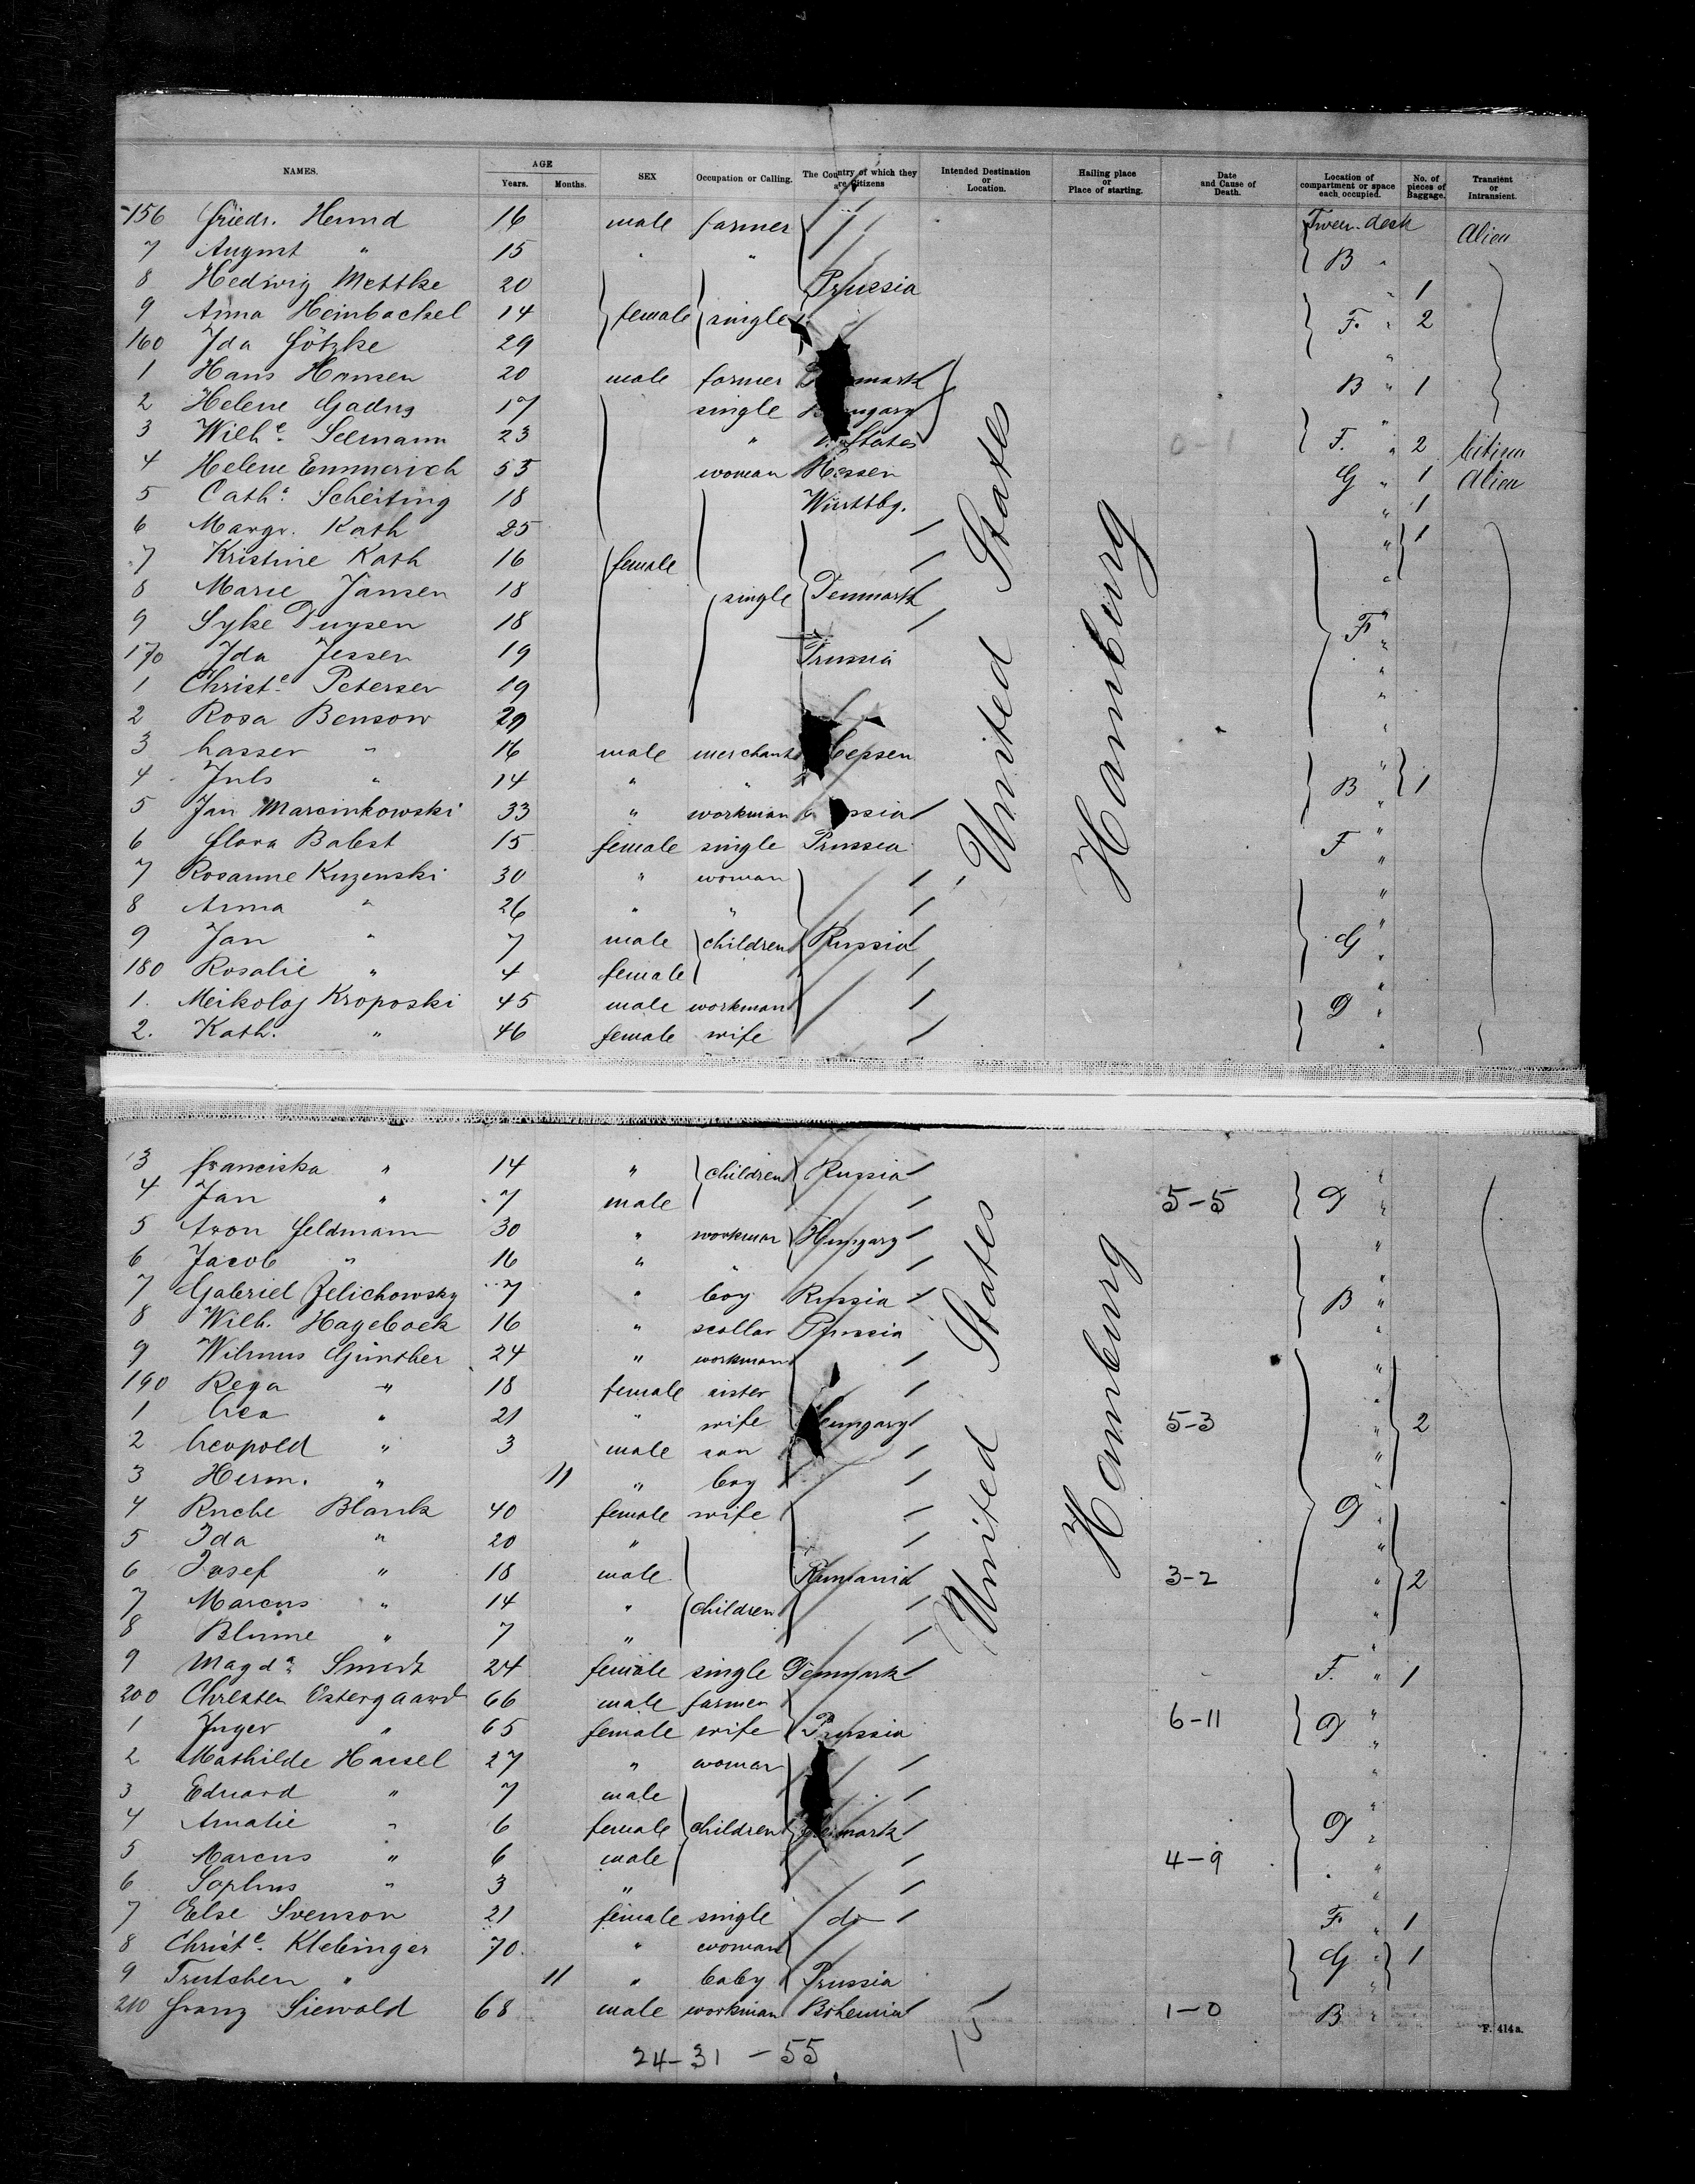 NAMES. AGE Years. Months. SEX Occupation or Calling. The Country of which they are Citizens Intended Destination or Location. Hailing place or Place of starting. Date and Cause of Death. Location of compartment or space each occupied. No. of pieces of Baggage. Transient or Intransient.
156 Friedr. Hemnd 16 male farmer Tween deck Alien
7 August " 15 " " B "
8 Hedwig Mettke 20 Prussia " 1
9 Anna Heinbackel 14 female single F. " 2
160 Ida Götzke 29 "
1 Hans Hansen 20 male farmer mark B " 1
2 Helene Gadus 17 single ngary "
3 Wilhe. Seemann 23 " States 0-1 F. " 2 Citizen
4 Helene Emmerich 53 woman Hessen G " 1 Alien
5 Catha. Scheiting 18 Wurttbg. " 1
6 Margr. Kath 25 " 1
7 Kristine Kath 16 female "
8 Marie Jansen 18 single Denmark "
9 Syke Duysen 18 F "
170 Ida Jessen 19 Prussia "
1 Christe. Petersen 19 "
2 Rosa Bensow 29 "
3 " 16 male merchant "
4 Juls " 14 " " B 1
5 Jan Marcinkowski 33 " workman ssia "
6 Flora Babst 15 female single Prussia F "
7 Rosanne Kuzenski 30 " woman "
8 Anna " 26 " " "
9 Jan " 7 male children Russia G "
180 Rosalie " 4 female "
1. Meikolaj Kroposki 45 male workman D "
2. Kath. " 46 female wife "
United States
Hamburg
3 Franciska " 14 " children Russia "
4 Jan " 7 male 5-5 D "
5 Aron Feldmann 30 " workman Hungary "
6 Jacob " 16 " " "
7 Gabriel Zelichowsky 7 " boy Russia B "
8 Wilh. Hagebock 16 " scollar Prussia "
9 Wilmus Günther 24 " workman "
190 Rega " 18 female sister "
1 Lea " 21 " wife Hungary 5-3 " 2
2 Leopold " 3 male son "
3 Herm. " 11 " boy "
4 Ruche Blank 40 female wife D "
5 Ida " 20 " "
6 Josef " 18 male Rumania 3-2 " 2
7 Marcus " 14 " children "
8 Blume " 7 "
9 Magda. 24 female single Denmark F. " 1
200 Chresten Ostergaard 66 male farmer "
1 Inger " 65 female wife Prussia 6-11 D "
2 Mathilde Haesel 27 " woman "
3 Eduard " 7 male "
4 Amalie " 6 female children mark D "
5 Marcus " 6 male 4-9 "
6 Sophus " 3 " "
7 Else Svenson 21 female single do F " 1
8 Christe. Klebinger 70. " woman G " 1
9 Trutchen " 11 " baby Prussia "
210 Franz Siewald 68 male workman Bohemia 1-0 B "
United States
Hamburg
F. 414a.
24-31-55
15